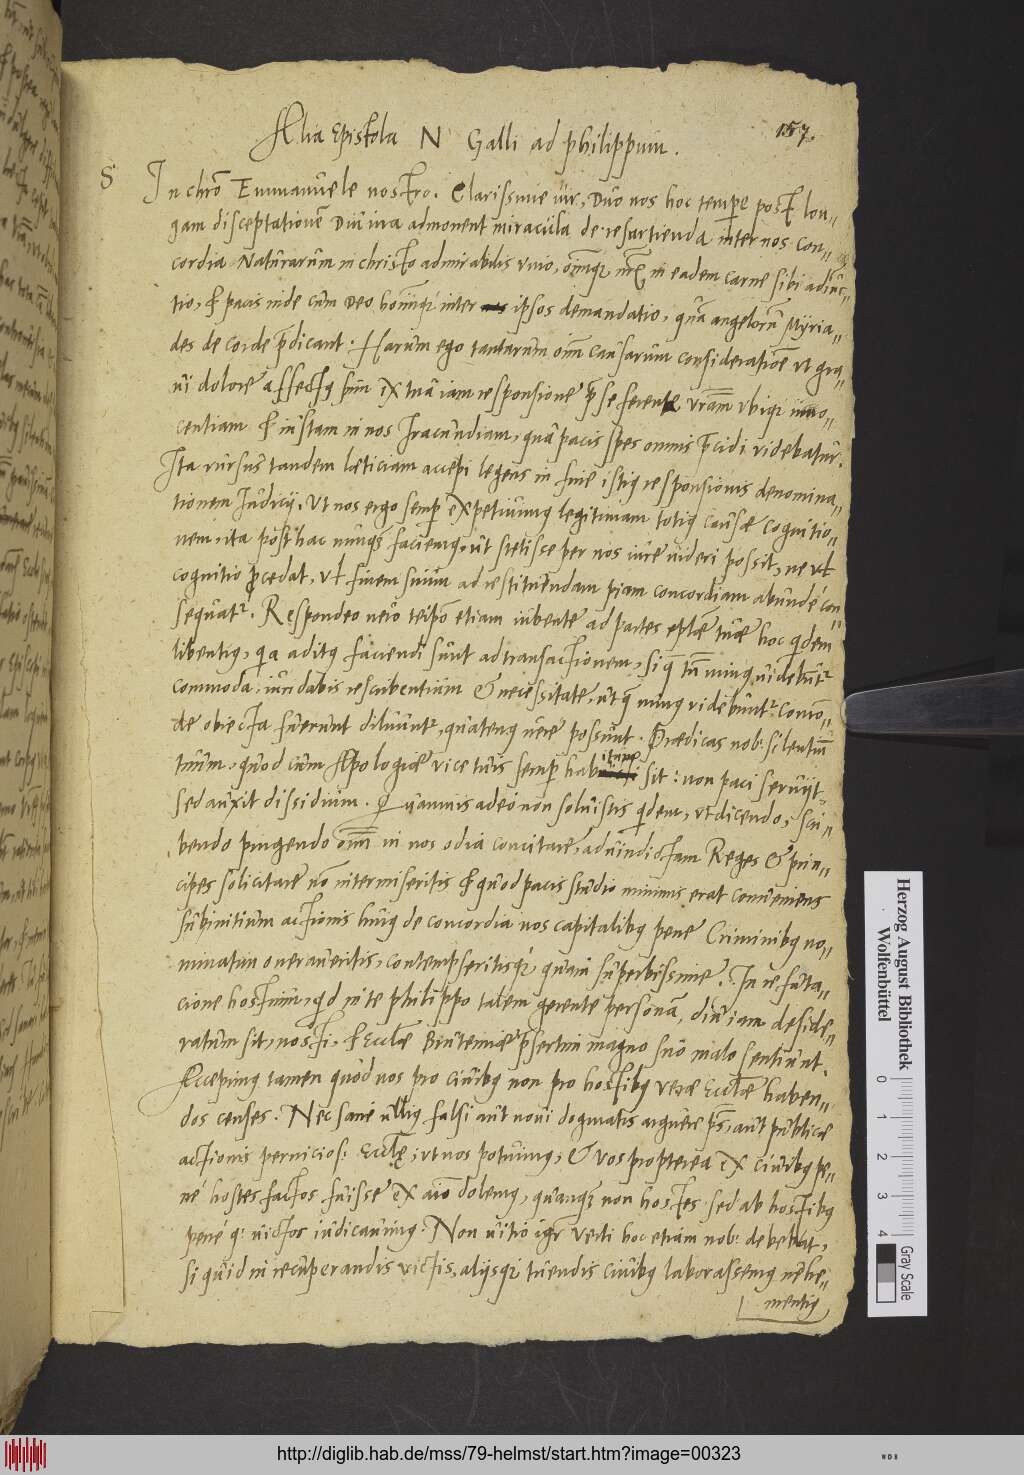 157.
Alia Epistola N Galli ad philippum.
S In chro Emmanuele nostro. Clarissime vir, Duo nos hoc tempe post lon-
gam disceptationem Diuina admonent miracula de resartienda inter nos con-
cordia Naturarum in christo admirabilis vnio, oimqz nrm in eadem carne sibi adiuc-
tio, et pacis inde cum Deo hoimqz inter ipsos demandatio, qua angelorum Myria-
des de corde pdicant. Harum ego tantarum oim causarum consideratioe vt gra-
ui dolore affectq sum ex tua iam responsione p se ferente vram vbiqz inno-
centiam et iustam in nos Iracundiam, qua pacis spes omnis pcidi videbatur.
Ita rursus tandem læticiam accepi legens in fine istiq responsionis denomina-
tionem Iudicij. Vt nos ergo semp expetiuimq legitimam totiq causæ cognitio-
nem, ita posthac nunqz faciemq, ut stetisse per nos iure uideri possit, ne vl
cognitio pcedat, vl finem suum ad restituendam piam concordiam abunde con
sequat. Respondeo uero teipo etiam iubente ad partes eplæ tuæ hoc qdem
libentiq, qa aditq faciendi sunt ad transactionem, siq tn minq uidebunt
commoda, iuri dabis rescribentium & necessitate, utqz minq videbunt como-
de obiecta fuerunt diluunt, quatenq uere possunt. Prædicas nob: silentiu
tuum, quod cum Apologiæ vice tuis semp habitum sit: non paci seruijt,
sed auxit dissidium. Quamuis adeo non soluistis qdem, vt dicendo, scri-
bendo pingendo oim in nos odia concitare, ad uindictam Reges & prin-
cipes solicitare no intermiseritis et quod pacis studio minimis erat conueniens
sub initium actionis huiq de concordia nos capitalibq pene Criminibq no-
minatim oneraueritis, contempseritisqz, quam superbissime. In refuta-
cione hostium, qd in te philippo talem gerente personam, diu iam deside-
ratum sit, nosti, et Ecclæ Brutemiæ psertim magno suo malo sentiunt.
Accepimq tamen quod nos pro ciuibq non pro hostibq veræ Ecclæ haben-
dos censes. Nec sane ulliq falsi aut noui dogmatis arguere ps, aut publicæ
actionis pernicios: Ecclę, vt nos potuimq, & vos propterea ex ciuibq pe-
ne hostes factos fuisse ex aio dolemq, quanqz non hostes sed ab hostibq
pene q: uictos iudicauimq. Non uitio igr verti hoc etiam nob: debebat,
si quid in recuperandis victis, alijsqz tuendis ciuibq laborassemq uehe-
mentiq
Herzog August Bibliothek
Wolfenbüttel
0 1 2 3 4
Gray Scale
http://diglib.hab.de/mss/79-helmst/start.htm?image=00323
WDB